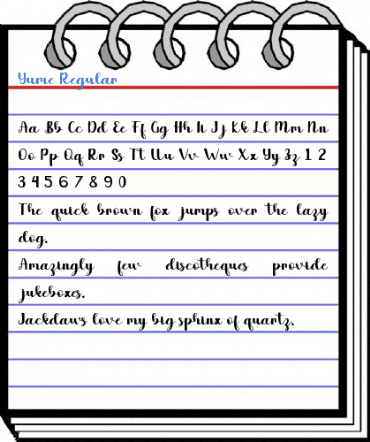 Yume Regular
Aa Bb Cc Dd Ee Ff Gg Hh Ii Jj Kk Ll Mm Nn
Oo Pp Qq Rr Ss Tt Uu Vv Ww Xx Yy Zz 1 2
3 4 5 6 7 8 9 0
The quick brown fox jumps over the lazy
dog.
Amazingly few discotheques provide
jukeboxes.
Jackdaws love my big sphinx of quartz.